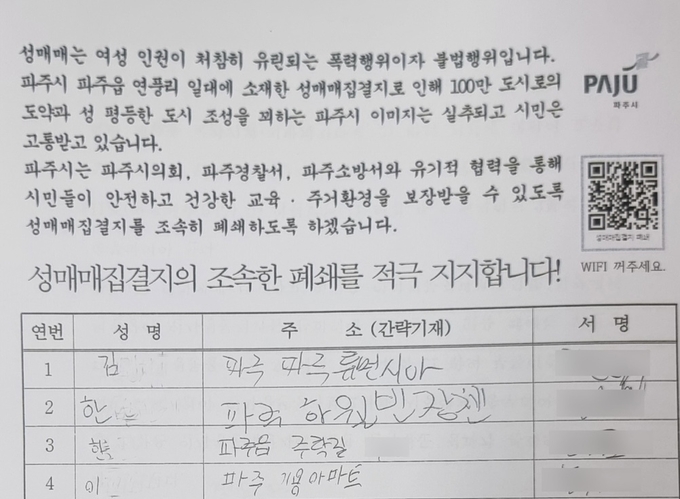 성매매는 여성 인권이 처참히 유린되는 폭력행위이자 불법행위입니다.
파주시 파주읍 연풍리 일대에 소재한 성매매집결지로 인해 100만 도시로의
도약과 성 평등한 도시 조성을 꾀하는 파주시 이미지는 실추되고 시민은
고통받고 있습니다.
파주시는 파주시의회, 파주경찰서, 파주소방서와 유기적 협력을 통해
시민들이 안전하고 건강한 교육·주거환경을 보장받을 수 있도록
성매매집결지를 조속히 폐쇄하도록 하겠습니다.
PAJU
파주시
성매매집결지 폐쇄
WIFI 꺼주세요.
성매매집결지의 조속한 폐쇄를 적극 지지합니다!
연번 성 명 주 소 (간략기재) 서 명
1 김
2 한
3 파주읍 주락길
4 이 파주